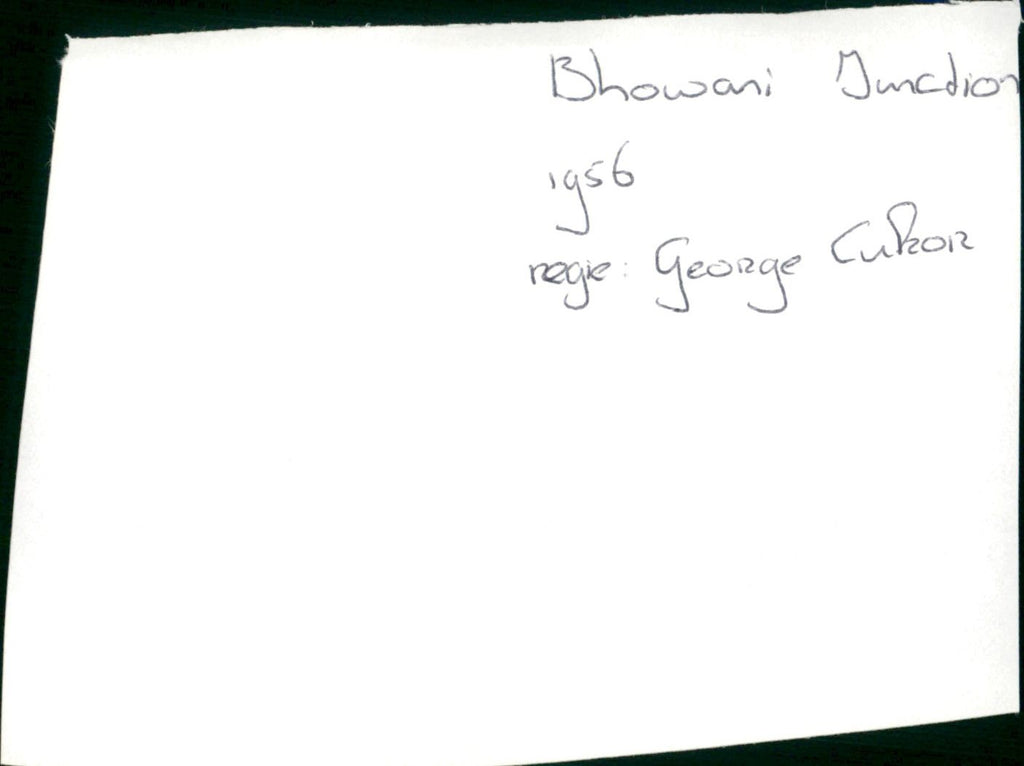 Bhowani Junction
1956
regie: George Cukor